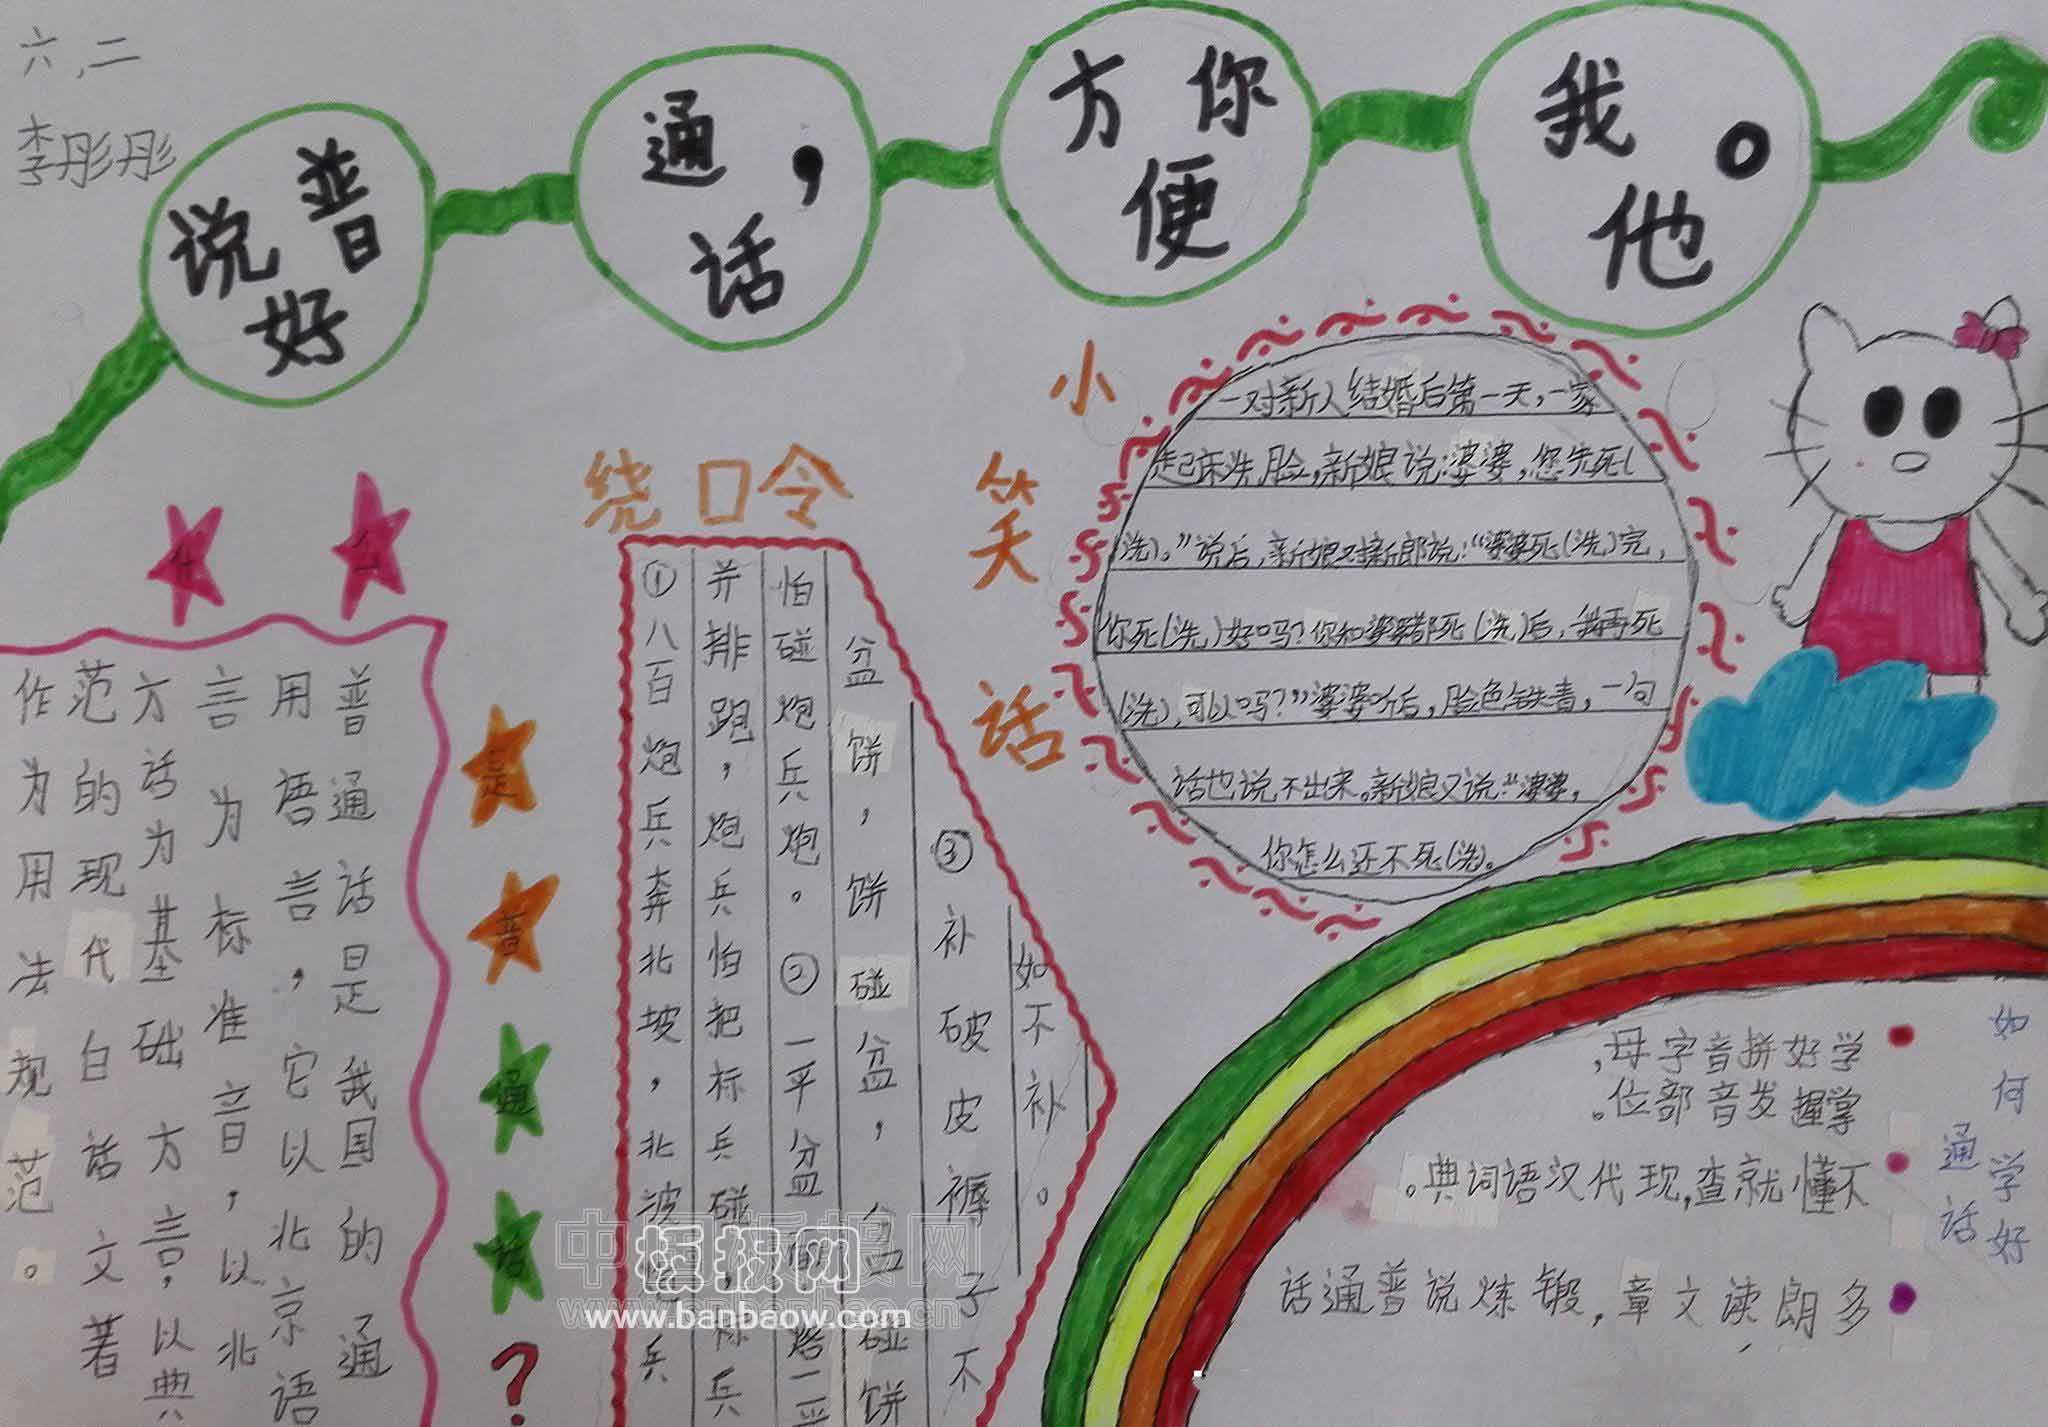 六,二
李彤彤
说好普
通话，
方便你
我他。
什么
是
普
通
话
?
普通话是我国的通
用语言，它以北京语
言为标准音，以北
方话为基础方言，以典
范的现代白话文著
作为用法规范。
绕口令
①八百炮兵奔北坡，北坡炮兵
并排跑，炮兵怕把标兵碰，标兵
怕碰炮兵炮。②一平盆
盆饼，饼碰盆，盆碰饼
③补破皮褥子不
如不补。
小笑话
一对新人结婚后第一天，一家
起床洗脸，新娘说：婆婆，您先死(
(洗)。”说后，新娘又对新郎说：“婆婆死(洗)完，
你死(洗)好吗？你知婆婆都死(洗)后，我再死
(洗)，可以吗？”婆婆听后，脸色铁青，一句
话也说不出来。新娘又说：“婆婆，
你怎么还不死(洗)。
如何学好
通话
学好拼音字母，
掌握发音部位。
不懂就查，现代汉语词典。
多朗读文章，锻炼说普通话
中板报网
www.banbaow.com